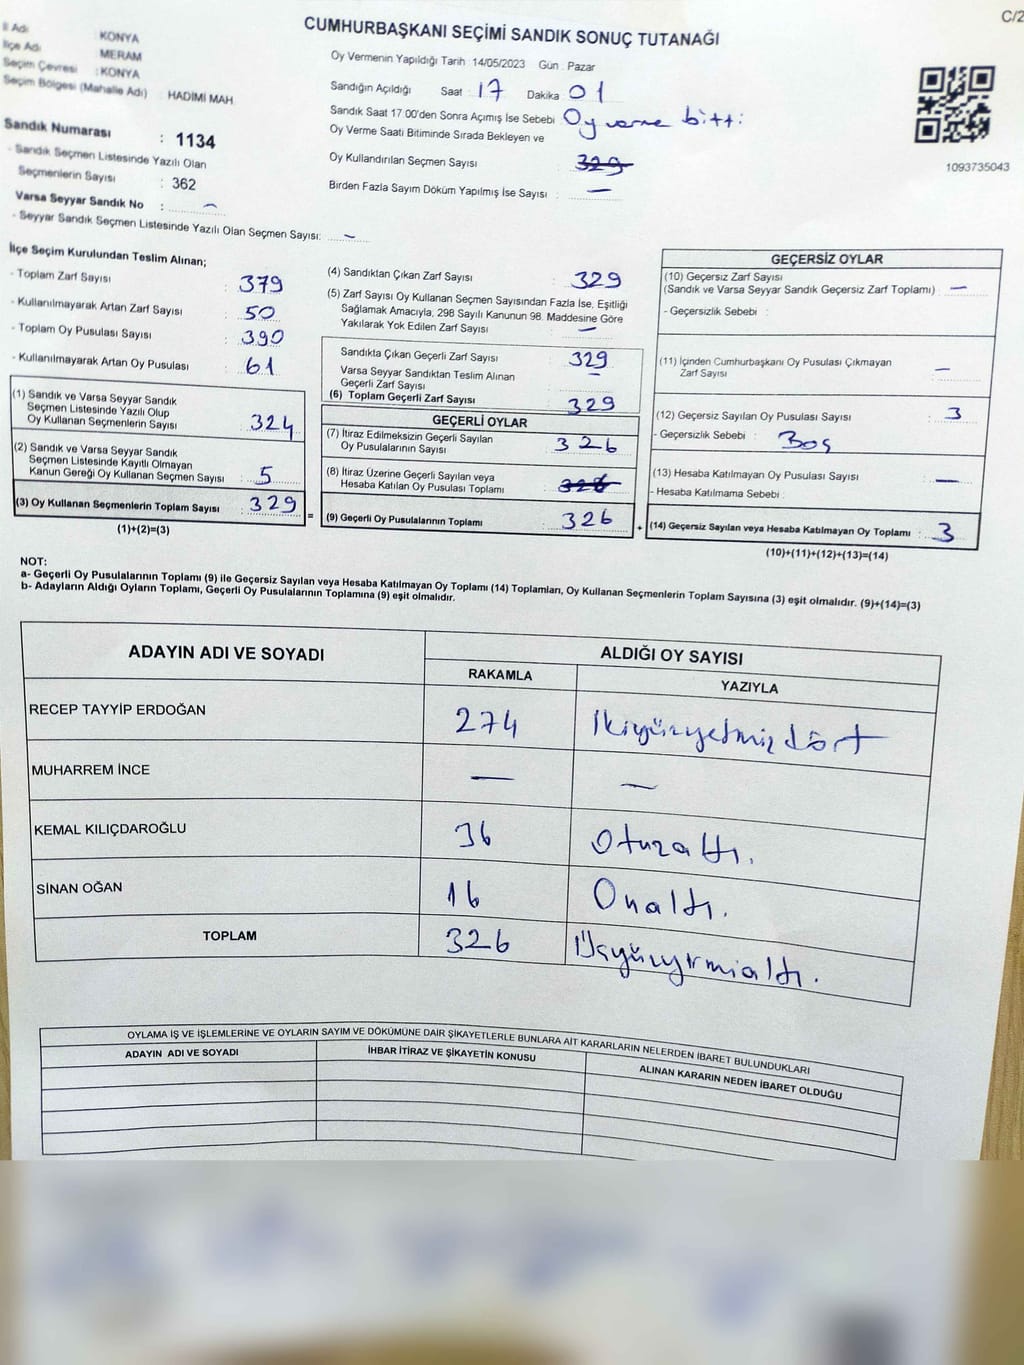 C/2
CUMHURBAŞKANI SEÇİMİ SANDIK SONUÇ TUTANAĞI
İl Adı : KONYA
İlçe Adı : MERAM
Seçim Çevresi : KONYA
Seçim Bölgesi (Mahalle Adı) : HADİMİ MAH.
Sandık Numarası : 1134
- Sandık Seçmen Listesinde Yazılı Olan
Seçmenlerin Sayısı : 362
Varsa Seyyar Sandık No : —
- Seyyar Sandık Seçmen Listesinde Yazılı Olan Seçmen Sayısı: —
Oy Vermenin Yapıldığı Tarih : 14/05/2023 Gün : Pazar
Sandığın Açıldığı Saat : 17 Dakika : 01
Sandık Saat 17:00'den Sonra Açımış İse Sebebi : Oy verme bitti
Oy Verme Saati Bitiminde Sırada Bekleyen ve
Oy Kullandırılan Seçmen Sayısı : 329
Birden Fazla Sayım Döküm Yapılmış İse Sayısı : —
1093735043
İlçe Seçim Kurulundan Teslim Alınan;
- Toplam Zarf Sayısı : 379
- Kullanılmayarak Artan Zarf Sayısı : 50
- Toplam Oy Pusulası Sayısı : 390
- Kullanılmayarak Artan Oy Pusulası : 61
(1) Sandık ve Varsa Seyyar Sandık
Seçmen Listesinde Yazılı Olup
Oy Kullanan Seçmenlerin Sayısı : 324
(2) Sandık ve Varsa Seyyar Sandık
Seçmen Listesinde Kayıtlı Olmayan
Kanun Gereği Oy Kullanan Seçmen Sayısı : 5
(3) Oy Kullanan Seçmenlerin Toplam Sayısı : 329 =
(1)+(2)=(3)
(4) Sandıktan Çıkan Zarf Sayısı : 329
(5) Zarf Sayısı Oy Kullanan Seçmen Sayısından Fazla İse, Eşitliği
Sağlamak Amacıyla, 298 Sayılı Kanunun 98. Maddesine Göre
Yakılarak Yok Edilen Zarf Sayısı : —
Sandıkta Çıkan Geçerli Zarf Sayısı : 329
Varsa Seyyar Sandıktan Teslim Alınan
Geçerli Zarf Sayısı : —
(6) Toplam Geçerli Zarf Sayısı : 329
GEÇERLİ OYLAR
(7) İtiraz Edilmeksizin Geçerli Sayılan
Oy Pusulalarının Sayısı : 326
(8) İtiraz Üzerine Geçerli Sayılan veya
Hesaba Katılan Oy Pusulası Toplamı : 326
(9) Geçerli Oy Pusulalarının Toplamı : 326 +
GEÇERSİZ OYLAR
(10) Geçersiz Zarf Sayısı
(Sandık ve Varsa Seyyar Sandık Geçersiz Zarf Toplamı) : —
- Geçersizlik Sebebi :
(11) İçinden Cumhurbaşkanı Oy Pusulası Çıkmayan
Zarf Sayısı : —
(12) Geçersiz Sayılan Oy Pusulası Sayısı : 3
- Geçersizlik Sebebi : Boş
(13) Hesaba Katılmayan Oy Pusulası Sayısı : —
- Hesaba Katılmama Sebebi :
(14) Geçersiz Sayılan veya Hesaba Katılmayan Oy Toplamı : 3
(10)+(11)+(12)+(13)=(14)
NOT:
a- Geçerli Oy Pusulalarının Toplamı (9) ile Geçersiz Sayılan veya Hesaba Katılmayan Oy Toplamı (14) Toplamları, Oy Kullanan Seçmenlerin Toplam Sayısına (3) eşit olmalıdır. (9)+(14)=(3)
b- Adayların Aldığı Oyların Toplamı, Geçerli Oy Pusulalarının Toplamına (9) eşit olmalıdır.
ADAYIN ADI VE SOYADI ALDIĞI OY SAYISI
RAKAMLA YAZIYLA
RECEP TAYYİP ERDOĞAN 274 İkiyüzyetmiş dört
MUHARREM İNCE — —
KEMAL KILIÇDAROĞLU 36 Otuzaltı.
SİNAN OĞAN 16 Onaltı.
TOPLAM 326 Üçyüzyirmialtı.
OYLAMA İŞ VE İŞLEMLERİNE VE OYLARIN SAYIM VE DÖKÜMÜNE DAİR ŞİKAYETLERLE BUNLARA AİT KARARLARIN NELERDEN İBARET BULUNDUKLARI
ADAYIN ADI VE SOYADI İHBAR İTİRAZ VE ŞİKAYETİN KONUSU ALINAN KARARIN NEDEN İBARET OLDUĞU